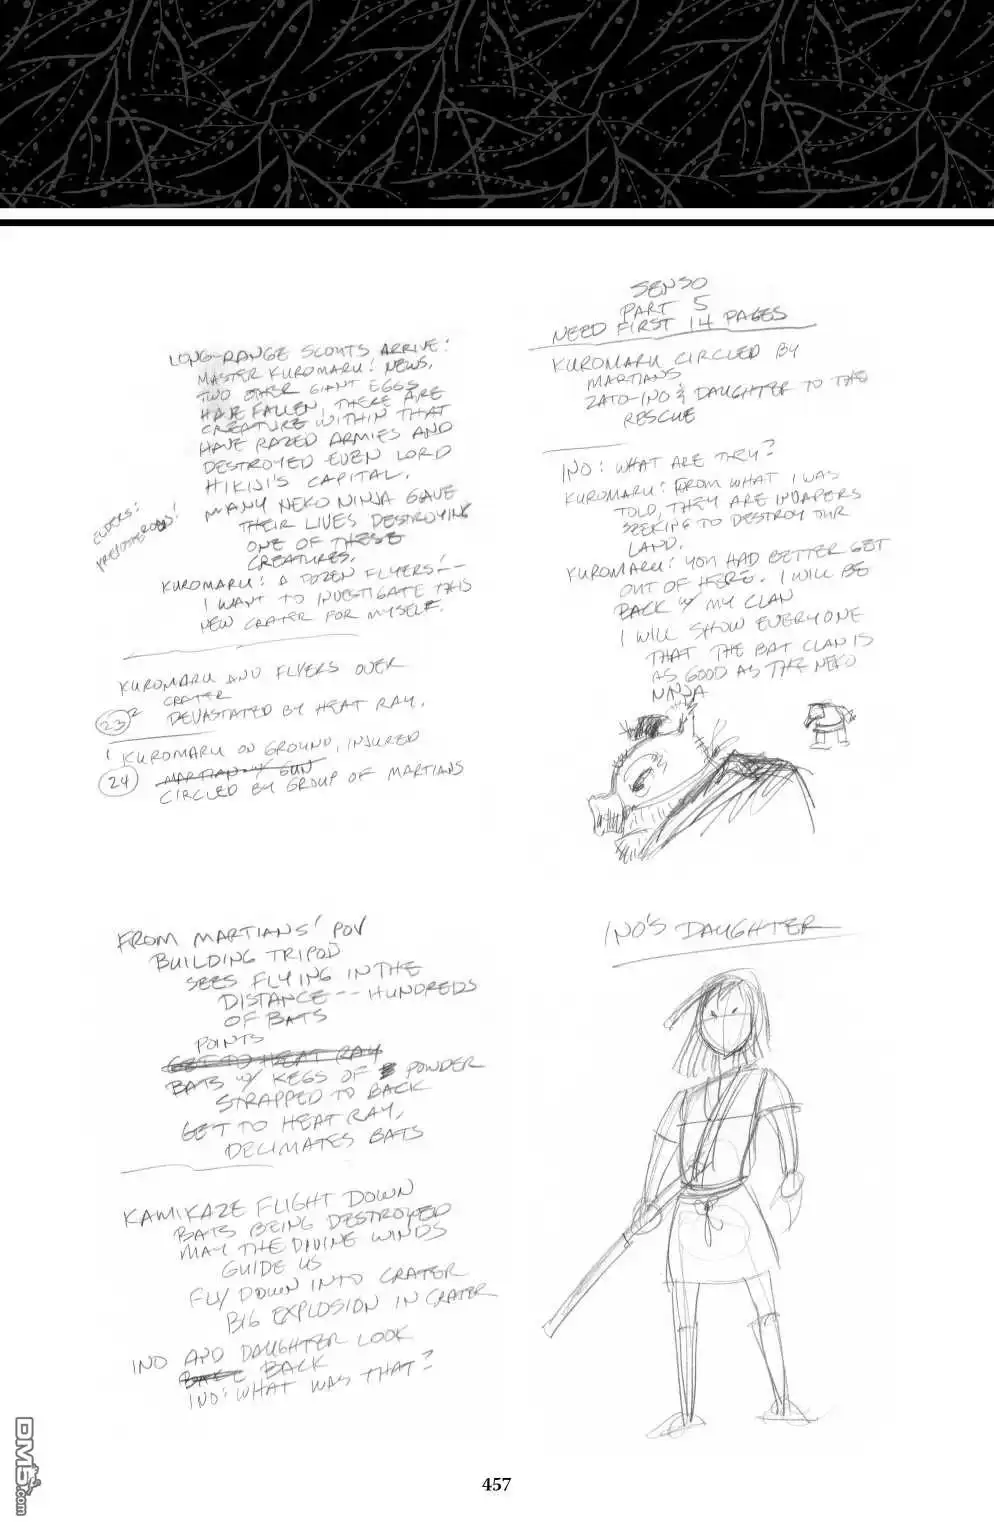 LONG-RANGE SCOUTS ARRIVE:
MASTER KUROMARU! NEWS.
TWO OTHER GIANT EGGS
HAVE FALLEN, THERE ARE
CREATURE WITHIN THAT
HAVE RAZED ARMIES AND
DESTROYED EVEN LORD
HIKIJI'S CAPITAL.
MANY NEKO NINJA GAVE
THEIR LIVES DESTROYING
ONE OF THESE
CREATURES.
ELDERS:
PREPOSTEROUS!
KUROMARU: A DOZEN FLYERS--
I WANT TO INVESTIGATE THIS
NEW CRATER FOR MYSELF.
KUROMARU AND FLYERS OVER
CRATER
23 2 DEVASTATED BY HEAT RAY.
1 KUROMARU ON GROUND, INJURED
24 MARTIAN W/ GUN
CIRCLED BY GROUP OF MARTIANS
SENSO
PART 5
NEED FIRST 14 PAGES
KUROMARU CIRCLED BY
MARTIANS
ZATO-INO & DAUGHTER TO THE
RESCUE
INO: WHAT ARE THEY?
KUROMARU: FROM WHAT I WAS
TOLD, THEY ARE INVADERS
SEEKING TO DESTROY OUR
LAND.
KUROMARU: YOU HAD BETTER GET
OUT OF HERE. I WILL BE
BACK W/ MY CLAN
I WILL SHOW EVERYONE
THAT THE BAT CLAN IS
AS GOOD AS THE NEKO
NINJA
FROM MARTIANS' POV
BUILDING TRIPOD
SEES FLYING IN THE
DISTANCE -- HUNDREDS
OF BATS
POINTS
GET TO HEAT RAY
BATS W/ KEGS OF POWDER
STRAPPED TO BACK
GET TO HEAT RAY,
DECIMATES BATS
KAMIKAZE FLIGHT DOWN
BATS BEING DESTROYED
MAY THE DIVINE WINDS
GUIDE US
FLY DOWN INTO CRATER
BIG EXPLOSION IN CRATER
INO AND DAUGHTER LOOK
BACK
INO: WHAT WAS THAT?
INO'S DAUGHTER
457
DM5.com